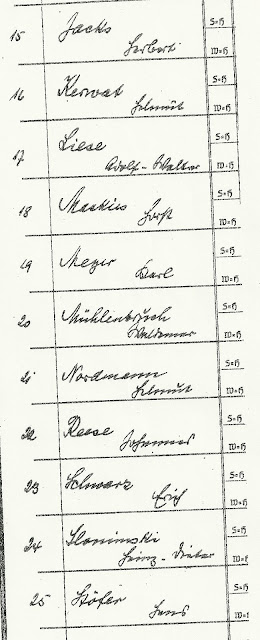 15 Jacks S=H
Herbert W=H
16 Kerwat S=H
Helmut W=H
17 Liese S=H
Adolf-Walter W=H
18 Mackies S=H
Horst W=H
19 Meyer S=H
Karl W=H
20 Mühlenbruch S=H
Waldemar W=H
21 Nordmann S=H
Helmut W=H
22 Reese S=H
Johannes W=H
23 Schwarz S=H
Erich W=H
24 Slominski S=H
Heinz-Dieter W=H
25 Stöfer S=H
Hans W=H